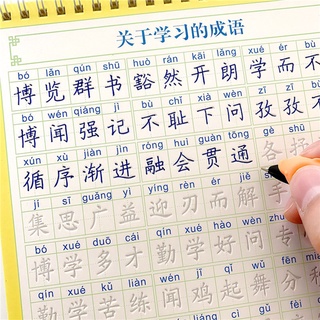 关于学习的成语
bó lǎn qún shū huò rán kāi lǎng xué ér bù
博览群书豁然开朗学而不
bó wén qiáng jì bù chǐ xià wèn zī zī bù
博闻强记不耻下问孜孜不
xún xù jiàn jìn róng huì guàn tōng gè shū
循序渐进融会贯通各抒
jí sī guǎng yì yíng rèn ér jiě
集思广益迎刃而解手
bó xué duō cái qín xué hào wèn zhuān
博学多才勤学好问专
qín xué kǔ liàn wén jī qǐ wǔ fèn
勤学苦练闻鸡起舞分